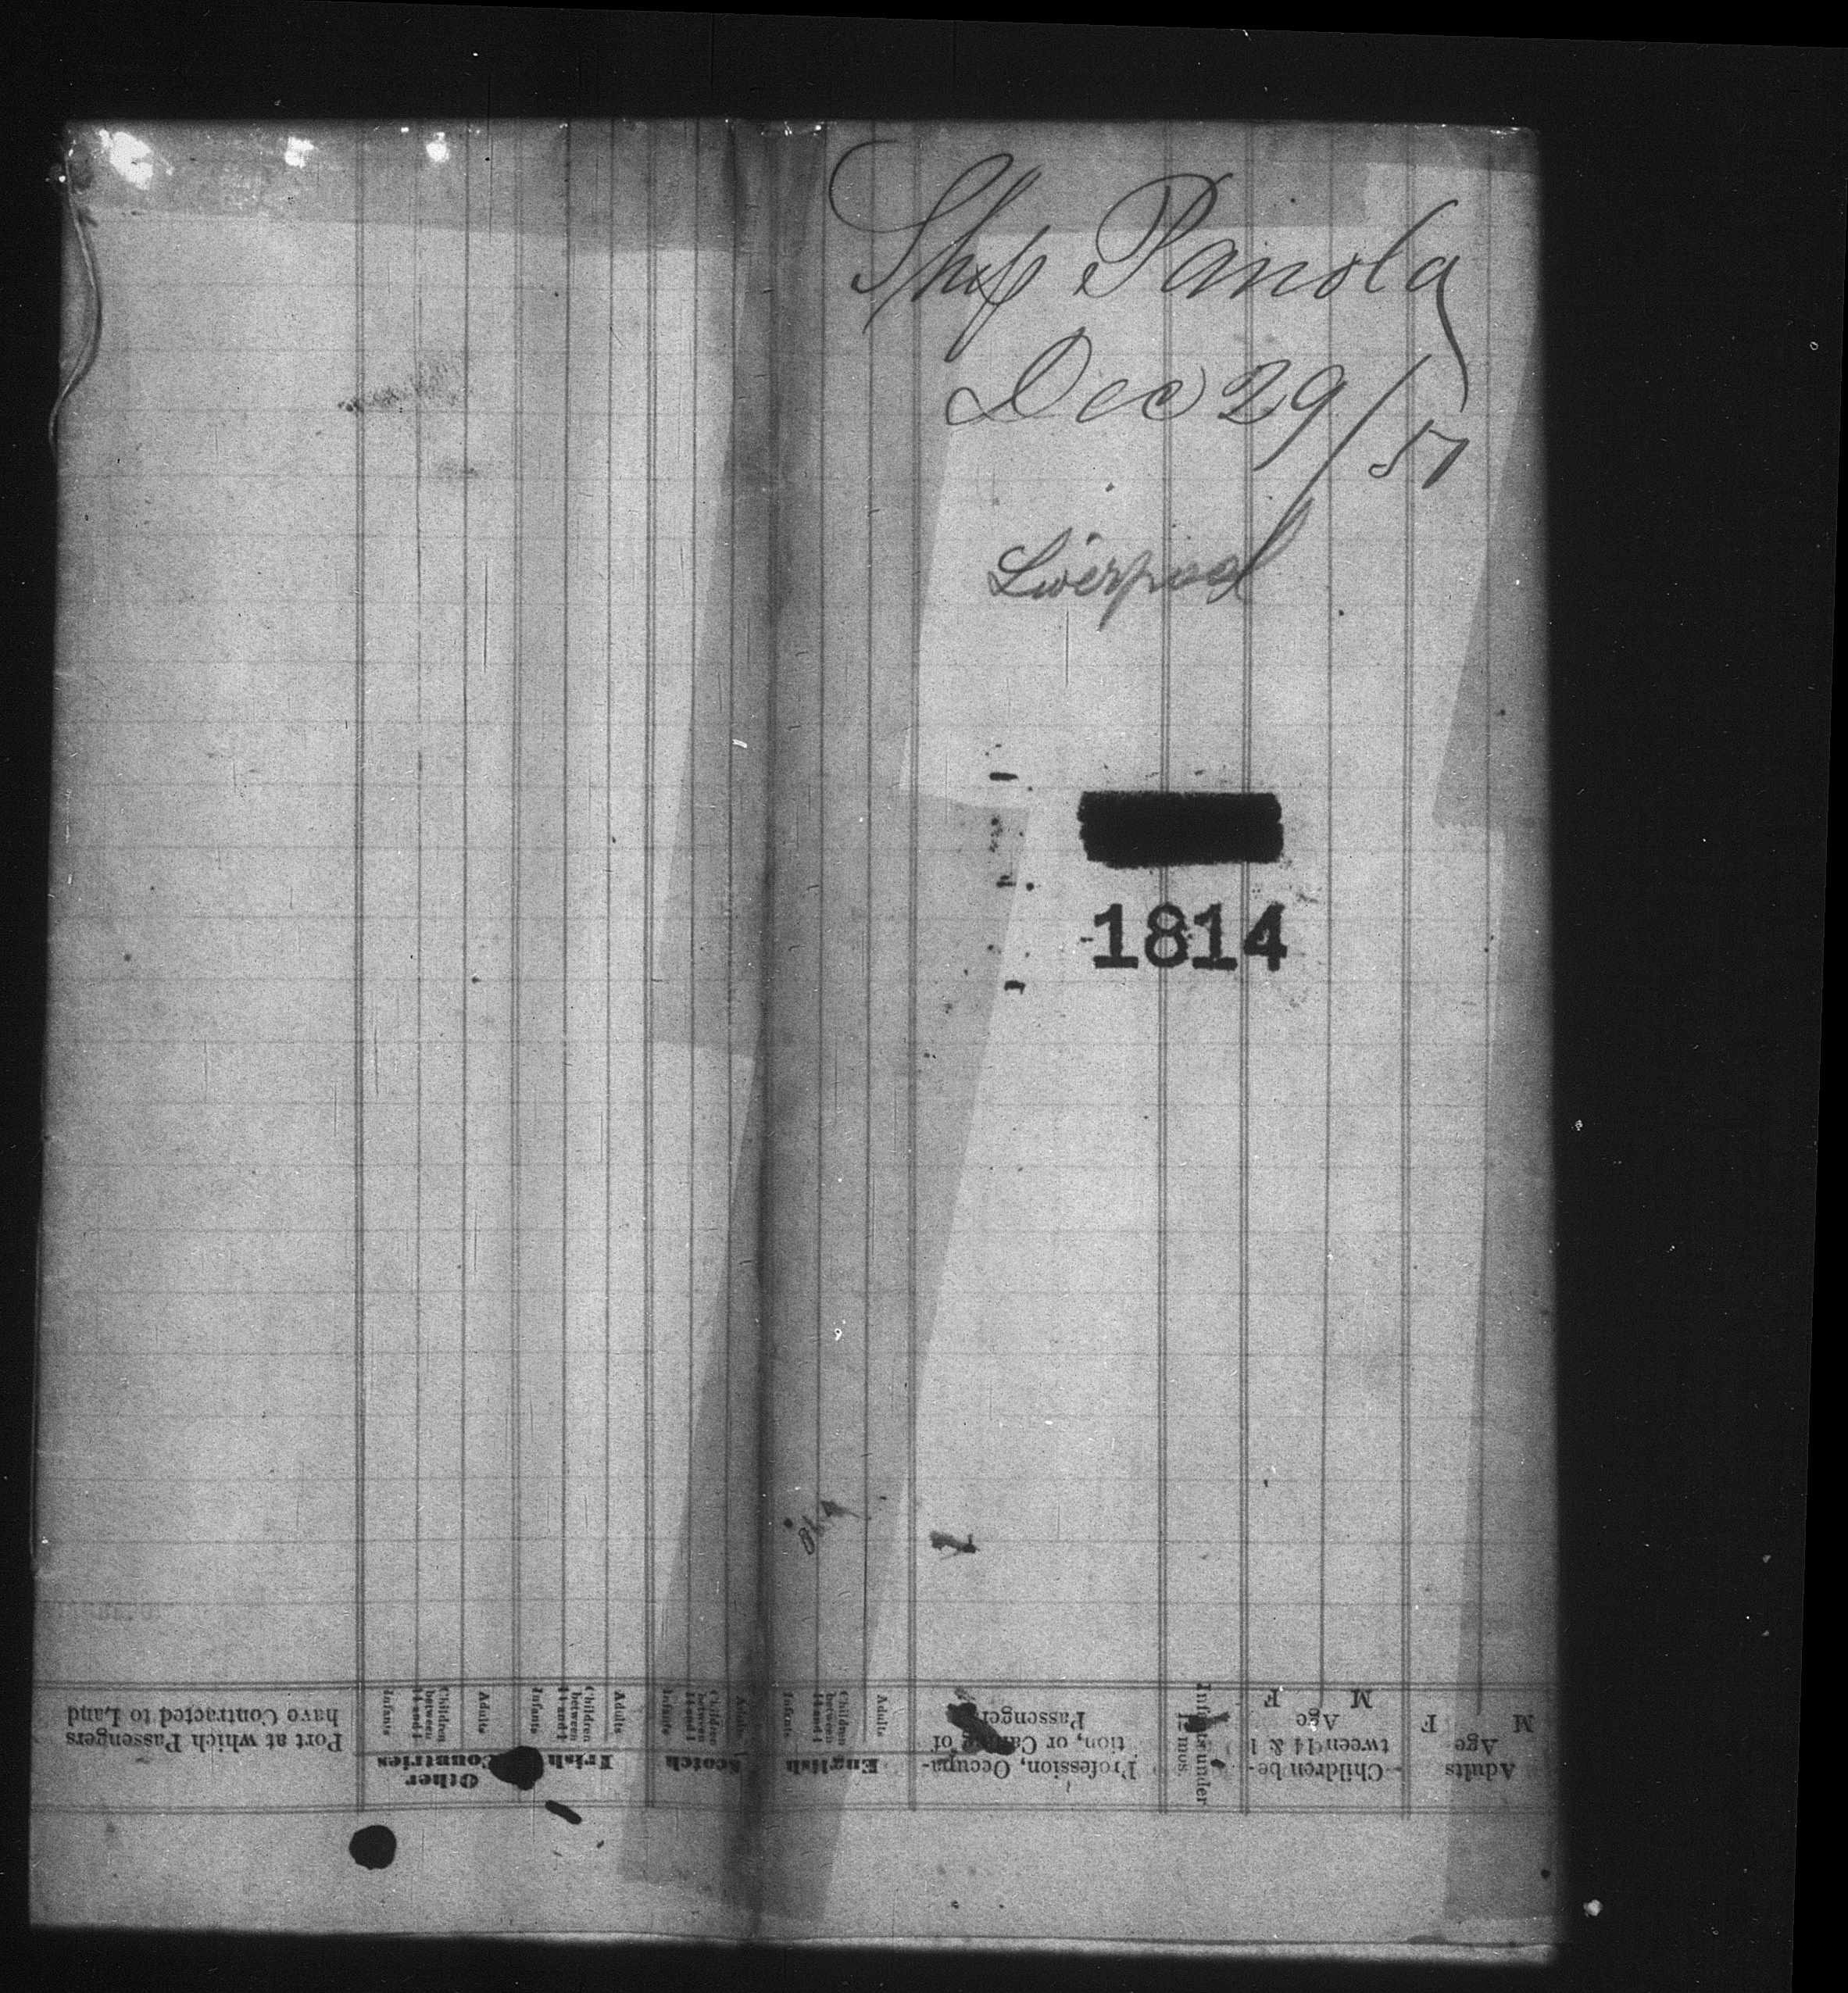 Ship Panola
Dec 29/57
Liverpool
1814
Adults
Age
M F
Children be-
tween 14 & 1
Age
M F
Infants under
12 mos.
Profession, Occupa-
tion, or Calling of
Passenger
English
Adults
Children between 14 and 1
Infants
Scotch
Adults
Children between 14 and 1
Infants
Irish
Adults
Children between 14 and 1
Infants
Other
Countries
Adults
Children between 14 and 1
Infants
Port at which Passengers
have Contracted to Land